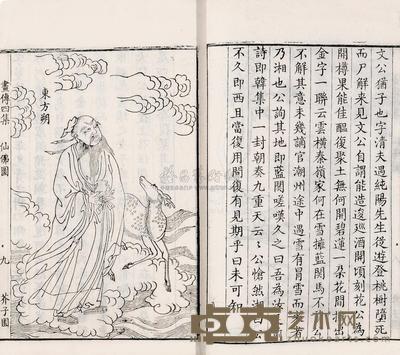 文公猶子也字清夫遇純陽先生從遊登桃樹墮死
而尸解來見文公自謂能造逡巡酒開頃刻花公爲
開樽果能佳醞復聚土無何開碧蓮一朶花間擁出
金字一聯云雲橫秦嶺家何在雪擁藍關馬不
不解其意未幾謫官潮州途中遇雪有冒雪而來者
乃湘也公詢其地即藍關嗟嘆久之曰吾爲汝
詩即韓集中一封朝奏九重天云〻公愴然湘曰公
不久即西且當復用問復有見期乎曰未可知
東方朔
畫傳四集
仙佛圖
九
芥子園